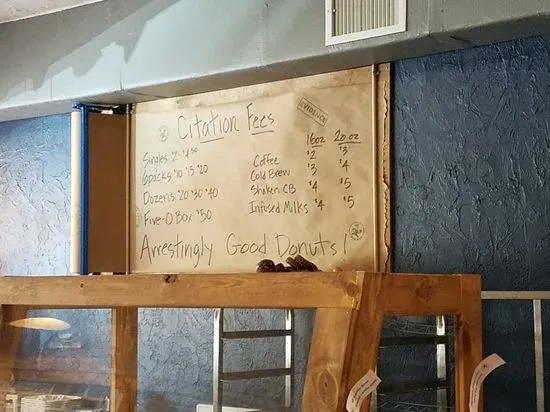 Citation Fees
EVIDENCE
16oz 20oz
Singles $2-$4.50
6packs $10 $15 $20
Dozens $20 $30 $40
Five-O Box $50
Coffee $2 $3
Cold Brew $3 $4
Shaken CB $4 $5
Infused Milks $4 $5
Arrestingly Good Donuts!